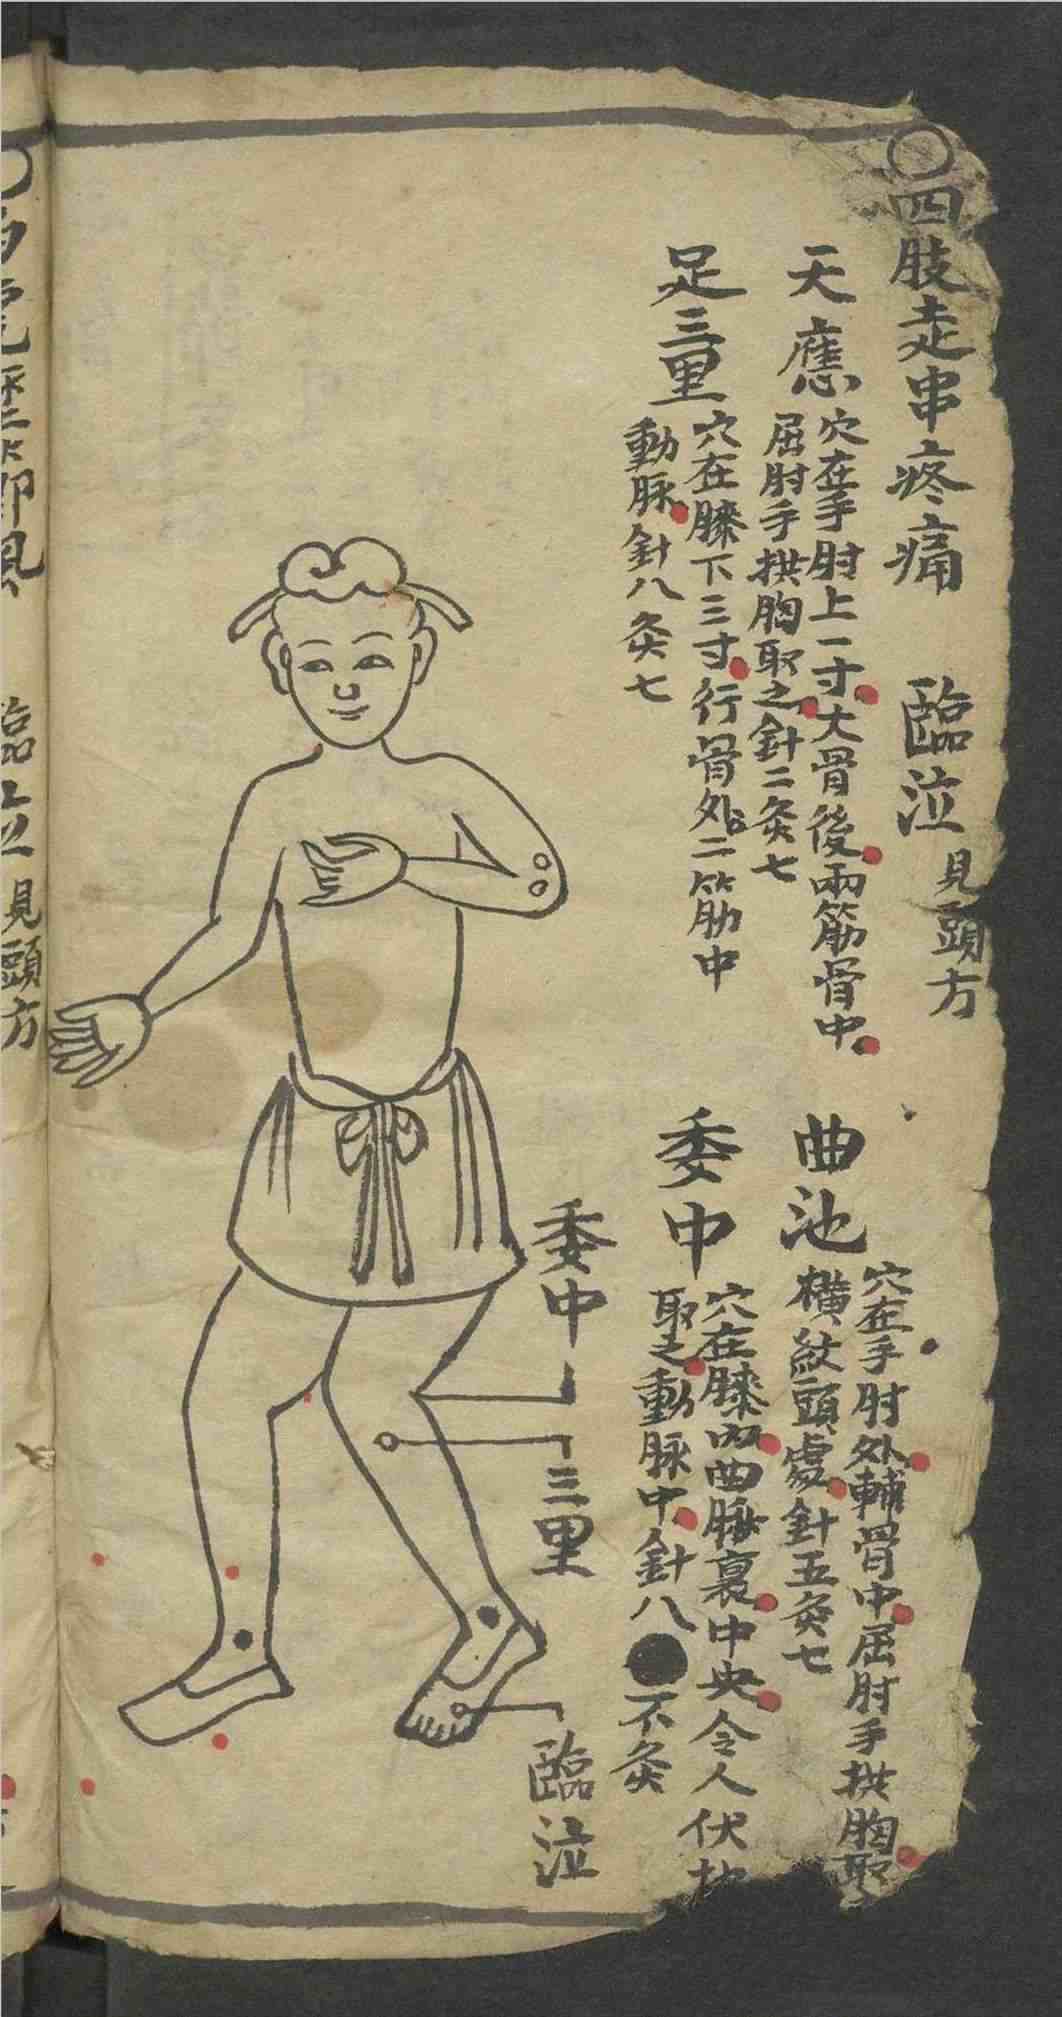 ○四肢走串疼痛 臨泣 見頭方
天應 穴在手肘上一寸大骨後兩筋骨中
屈肘手拱胸取之針二灸七
曲池 穴在手肘外輔骨中屈肘手拱胸取
橫紋頭處針五灸七
足三里 穴在膝下三寸行骨外二筋中
動脉針八灸七
委中 穴在膝內曲䐐裏中央令人伏地
取之動脉中針八●不灸
委中
三里
臨泣
臨泣 見頭方